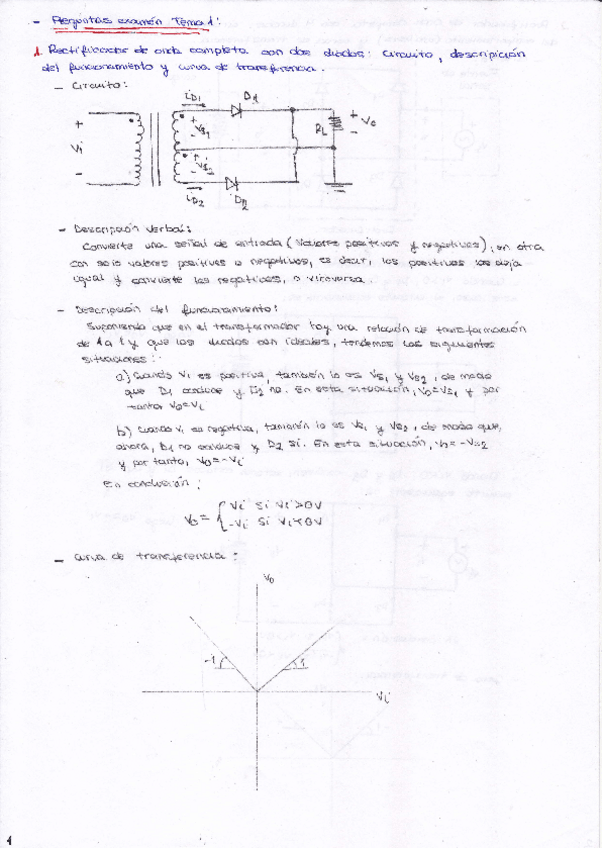 - Preguntas examén Tema 1:
1. Rectificador de onda completa con dos diodos: circuito, descripción
del funcionamiento y curva de transferencia.
- Circuito:
iD1 D1
+ + +
Vi VS1 RL Vo
- - -
+
VS2
-
iD2 D2
- Descripción verbal:
Convierte una señal de entrada (valores positivos y negativos), en otra
con solo valores positivos o negativos, es decir, los positivos los deja
igual y convierte los negativos, o viceversa.
- Descripción del funcionamiento:
Suponiendo que en el transformador hay una relación de transformación
de 1 a 1 y que los diodos son ideales, tendemos las siguientes
situaciones:
a) Cuando Vi es positiva, también lo es VS1 y VS2, de modo
que D1 conduce y D2 no. En esta situación, Vo=VS1 y por
tanto Vo=Vi
b) Cuando Vi es negativa, también lo es VS1 y VS2, de modo que,
ahora, D1 no conduce y D2 sí. En esta situación, Vo=-VS2
y por tanto, Vo=-Vi
En conclusión:
Vo = { Vi si Vi>0V
-Vi si Vi<0V
- Curva de transferencia:
Vo
-1 1
Vi
1